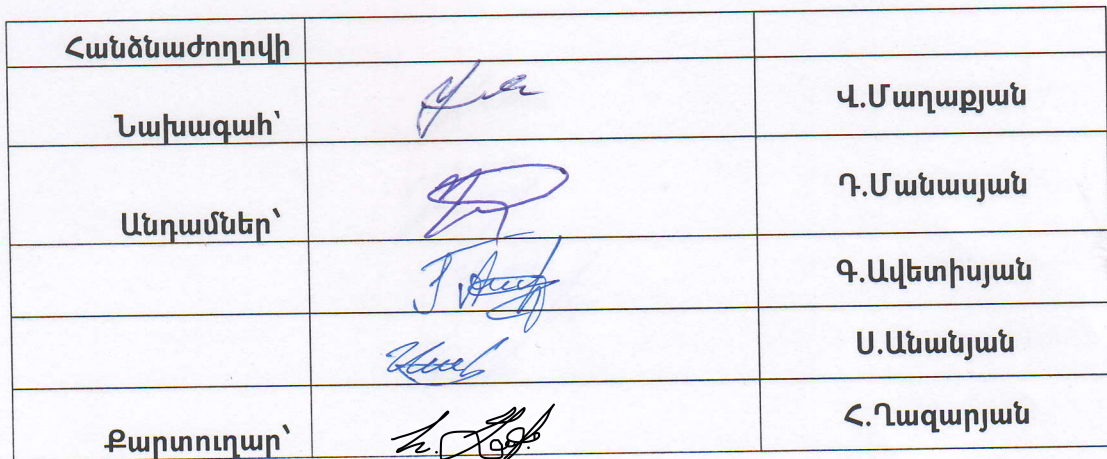 Հանձնաժողովի
Նախագահ՝ Վ.Մաղաքյան
Անդամներ՝ Դ.Մանասյան
Գ.Ավետիսյան
Ս.Անանյան
Քարտուղար՝ Հ.Ղազարյան